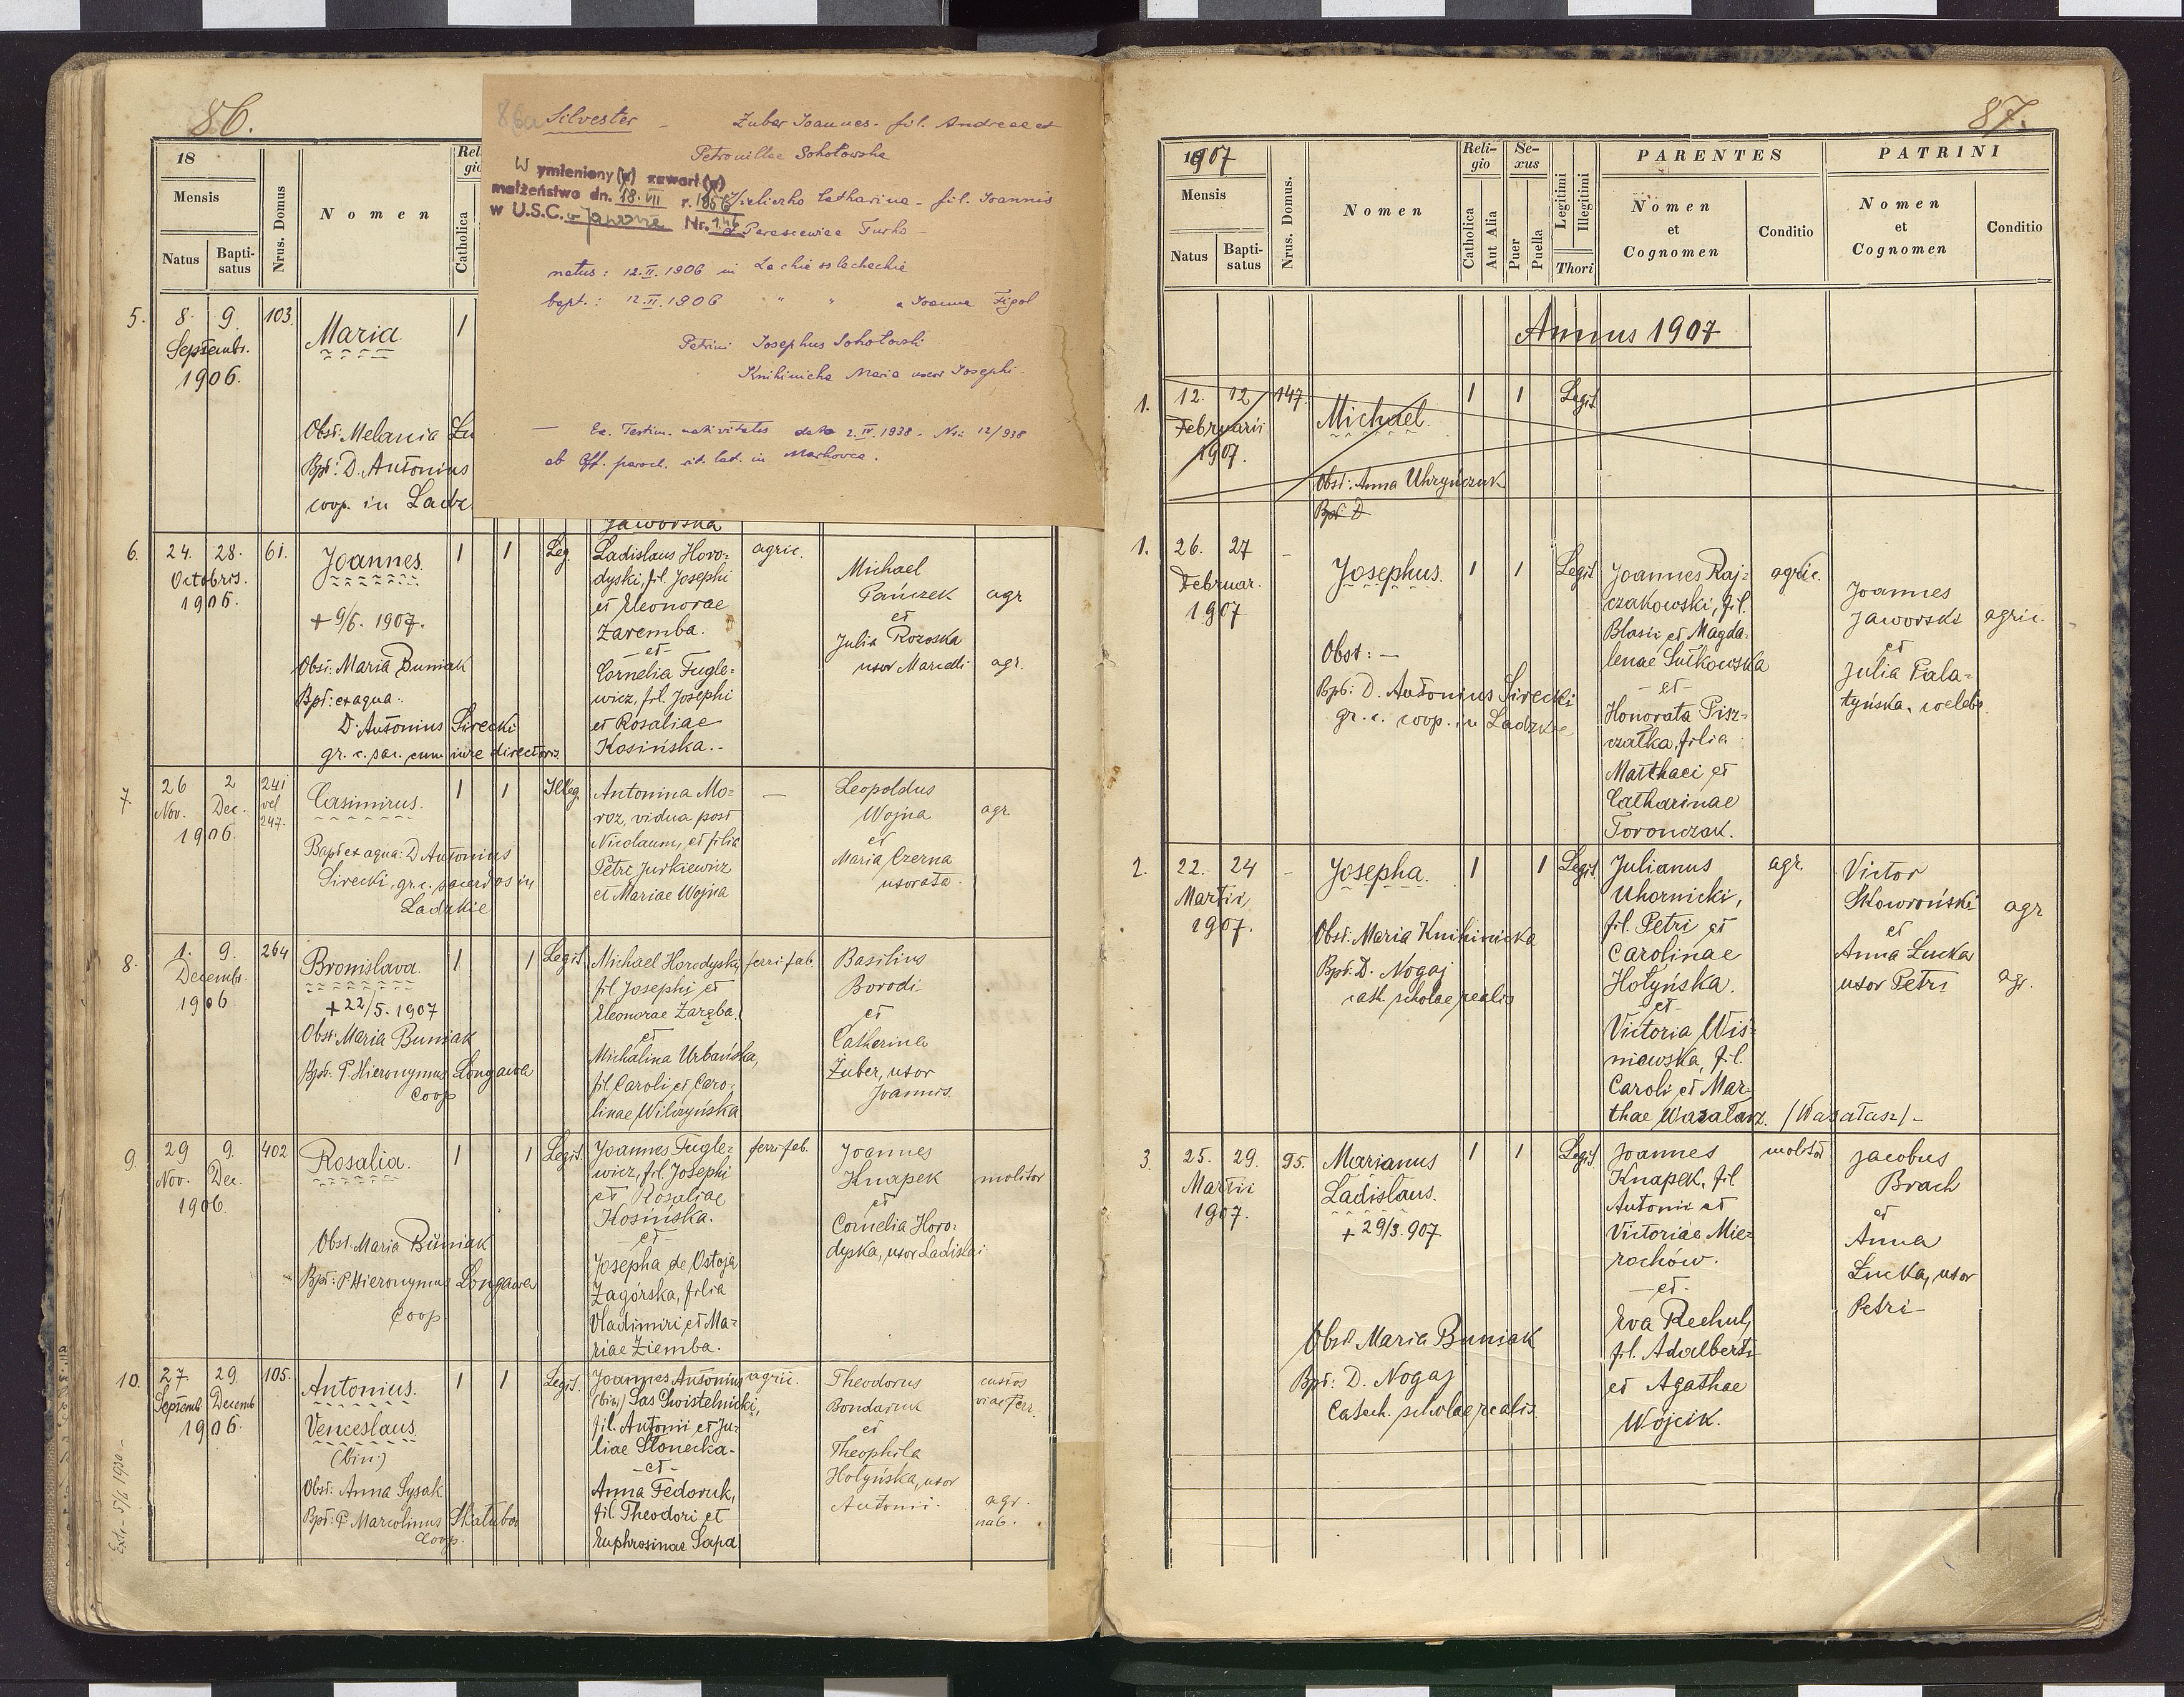 86.
18
Mensis
Natus
Bapti-
satus
Nrus. Domus
Nomen
Catholica
86a Silvester - Zuber Joannes - fil. Andreae et
Petronillae Sokołowska
W ymieniony (a) zawarł (a)
małżeństwo dn. 18.VII r. 1956
w U.S.C. w Nr. 146
Catharina - fil. Joannis
Parasceviae Turko -
natus: 12.II.1906 in Lackie szlacheckie
bapt.: 12.II.1906 " " a Joanne Figol
Patrini Josephus Sokołowski
Knihinicka Maria uxor Josephi -
— Ex. Testim. nativitatis dato 2.IV.1938 - Nr: 12/938
ab Off. paroch. rit. lat. in Markowce.
5.
8. 9.
Septembr.
1906.
103.
Maria
1
Obst: Melania
Bpt: D. Antonius
coop. in Ladz
Jaworska
6.
24. 28.
Octobris.
1906.
61.
Joannes
1 1 Leg.
+ 9/6. 1907.
Obst. Maria Buniak
Bpt: ex aqua:
D. Antonius Sirecki
gr. c. sac. cum iure directoris
Ladislaus Horo-
dyski, fil. Josephi
et Eleonorae
Zaremba.
- et -
Cornelia Fugle-
wicz, fil. Josephi
et Rosaliae
Kosińska. -
agric.
Michael
Pańczek
et
Julia Rozoska
uxor Marcelli
agr
agr.
7
26 2
Nov. Dec.
1906.
241
vel
247.
Casimirus.
1 1 Illeg.
Bapt ex aqua: D Antonius
Sirecki, gr. c. sacerdos in
Ladzkie
Antonina Mo-
roz, vidua post
Nicolaum, et filia
Petri Jurkiewicz
et Mariae Wojna
—
Leopoldus
Wojna
et
Maria Czerna
uxorata.
agr.
8.
1. 9.
Decembr.
1906
264
Bronislava.
1 1 Legit.
+ 22/5. 1907
Obst: Maria Buniak
Bpt. P. Hieronymus Longawa
Coop
Michael Horodyski
fil Josephi et
Eleonorae Zaręba.
et
Michalina Urbańska,
fil. Caroli et Caro-
linae Wilczyńska
ferri fab.
Basilius
Borodi
et
Catherina
Żuber, uxor
Joannis.
9.
29 9.
Nov. Dec.
1906
402
Rosalia.
1 1 Legit.
Obst. Maria Buniak
Bpt: P Hieronymus Longawa
Coop
Joannes Fugle-
wicz, fil. Josephi
et Rosaliae
Kosińska.
- et -
Josepha de Ostoja
Zagórska, filia
Vladimiri et Ma-
riae Ziemba.
ferri fab.
Joannes
Knapek
et
Cornelia Horo-
dyska, uxor Ladislai
molitor
10.
27. 29.
Septemb Decemb
1906.
105.
Antonius.
Venceslaus
(bin)
1 1 Legit.
Obst: Anna Sysak
Bpt: P Marcolinus Skałuba
Coop.
Extr. 5/6 1930 -
Joannes Antonius
(bin) Sas Chvistelnicki,
fil. Antonii et Ju-
liae Słonecka -
- et -
Anna Fedoruk,
fil. Theodori et
Euphrosinae Sapa
agric.
Theodorus
Bondaruk
et
Theophila
Hołyńska, uxor
Antonii.
custos
viae ferr.
agr.
nab.
87.
1907
Mensis
Natus
Bapti-
satus
Nrus. Domus.
Nomen
Reli-
gio
Catholica
Aut Alia
Se-
xus
Puer
Puella
Legitimi
Illegitimi
Thori
PARENTES
Nomen
et
Cognomen
Conditio
PATRINI
Nomen
et
Cognomen
Conditio
Annus 1907
1.
12. 12
Februarii
1907.
147.
Michael.
1 1 Legit.
Obst: Anna Uhryńczuk
Bpt D
1.
26. 27
Februar.
1907
-
Josephus.
1 1 Legit
Obst: -
Bpt: D. Antonius Sirecki
gr. c. coop. in Ladzkie
Joannes Raj-
czakowski, fil.
Blasii et Magda-
lenae Sułkowska
- et -
Honorata Pisz-
czatka, filia
Matthaei et
Catharinae
Toronczak.
agric.
Joannes
Jaworski
et
Julia Pala-
tyńska, coelebs.
agric.
2.
22. 24
Martii,
1907.
-
Josepha.
1 1 Legit.
Obst. Maria Knihinicka
Bpt. D. Nogaj
cath. scholae realis
Julianus
Uhornicki,
fil. Petri et
Carolinae
Hołyńska.
- et -
Victoria Wiś-
niewska, fil.
Caroli et Mar-
thae Wazalarz. (Wasałasz) -
agr.
Victor
Skowroński
et
Anna Łucka
uxor Petri
agr
agr.
3.
25. 29.
Martii
1907.
95.
Marianus
Ladislaus.
1 1 Legit
+ 29/3. 907.
Obst. Maria Buniak
Bpt: D. Nogaj
Catech. scholae realis.
Joannes
Knapek, fil
Antonii et
Victoriae Mie-
rochów.
- et -
Eva Rechul,
fil. Adalberti
et Agathae
Wójcik.
molitor
Jacobus
Brach
et
Anna
Łucka, uxor
Petri